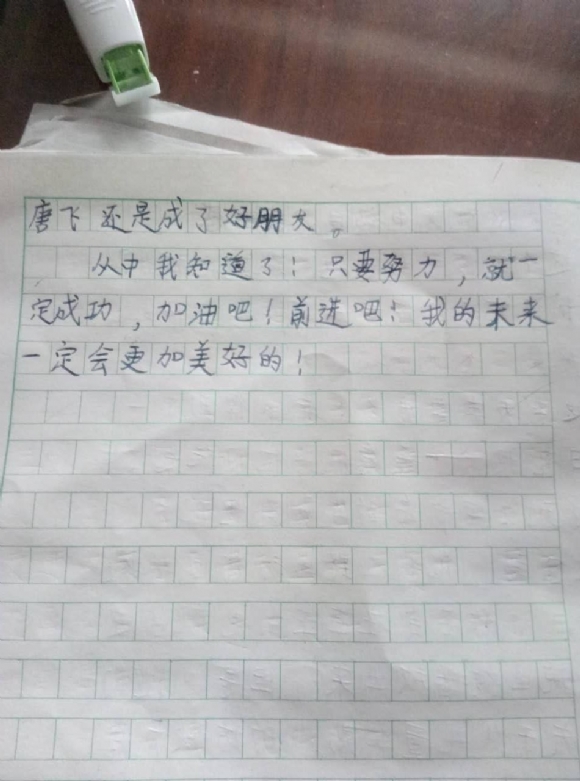 唐飞还是成了好朋友。
从中我知道了！只要努力，就一
定成功，加油吧！前进吧！我的未来
一定会更加美好的！